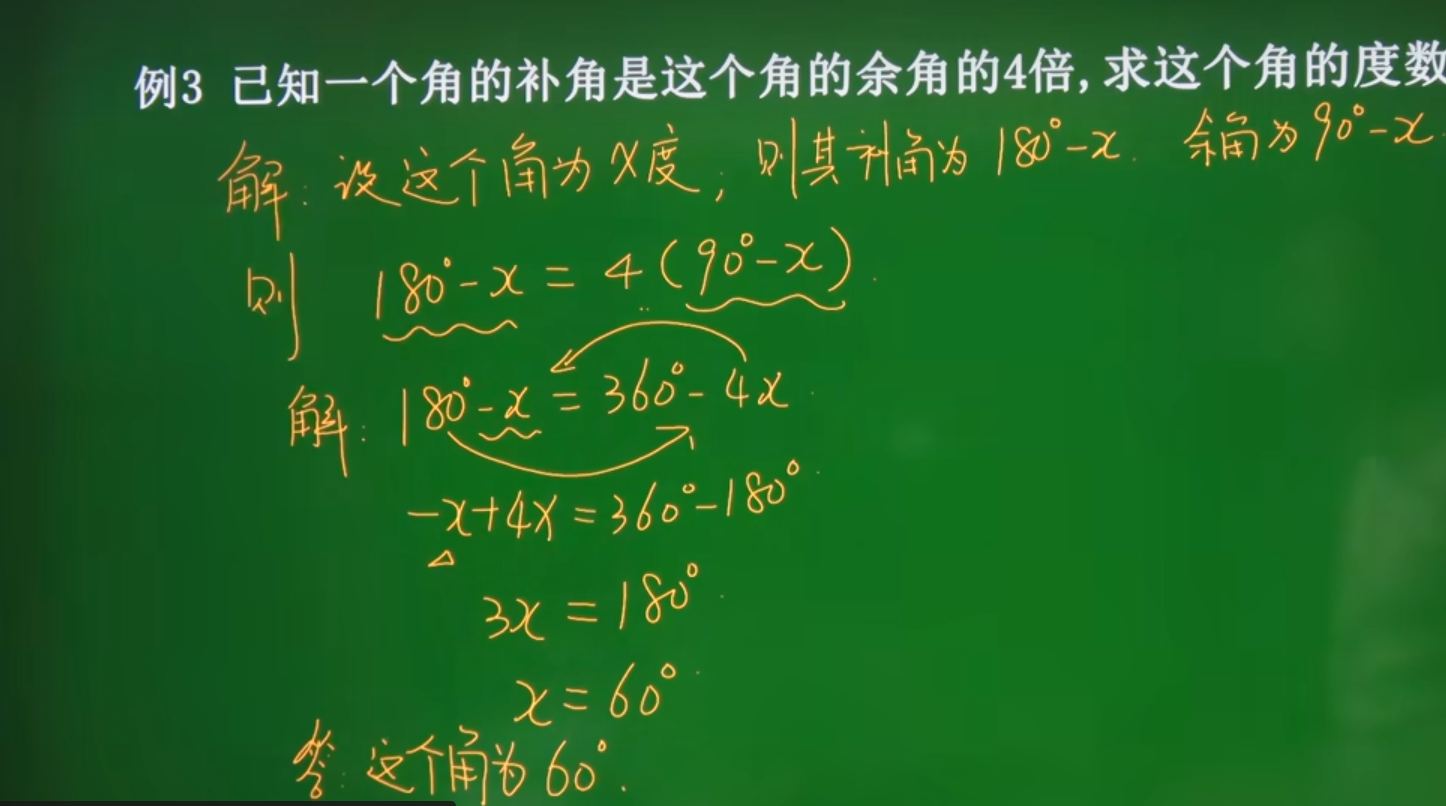 例3 已知一个角的补角是这个角的余角的4倍,求这个角的度数
解:设这个角为x度,则其补角为180°-x. 余角为90°-x.
则 180°-x=4(90°-x).
解:180°-x=360°-4x.
-x+4x=360°-180°.
3x=180°.
x=60°.
答:这个角为60°.